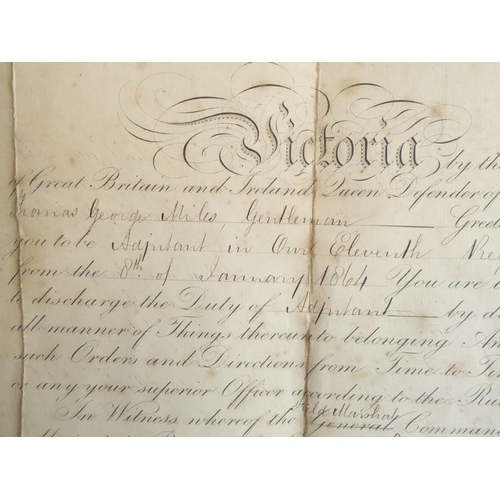 Victoria by the
of Great Britain and Ireland Queen Defender of
Thomas George Miles, Gentleman Greet
you to be Adjutant in Our Eleventh
from the 8th of January 1864 You are
to discharge the Duty of Adjutant by d
all manner of Things thereunto belonging An
such Orders and Directions from Time to Tim
or any your superior Officer according to the Rul
Field Marshal
In Witness whereof the General Comman